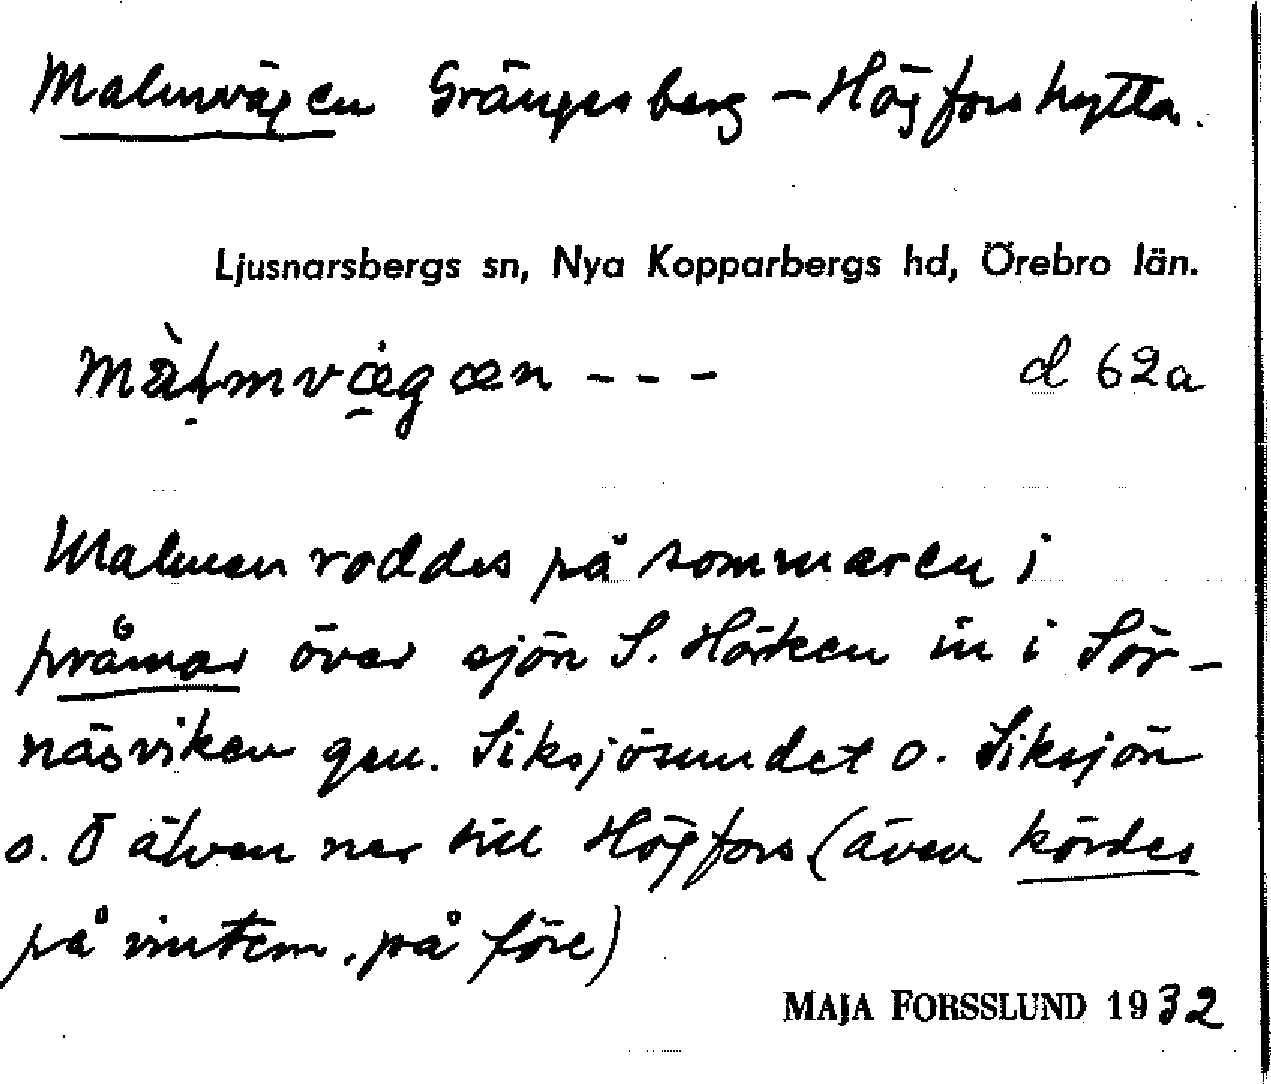 Malmvägen Grängesberg - Högforshytta.
Ljusnarsbergs sn, Nya Kopparbergs hd, Örebro län.
màlmvægæn - - - d 62a
Malmen roddes på sommaren i
pråmar över sjön S. Hörken in i Sör-
näsviken gm. Siksjösundet o. Siksjön
o. Ö älven ner till Högfors (även kördes
på vintern, på före)
MAJA FORSSLUND 1932